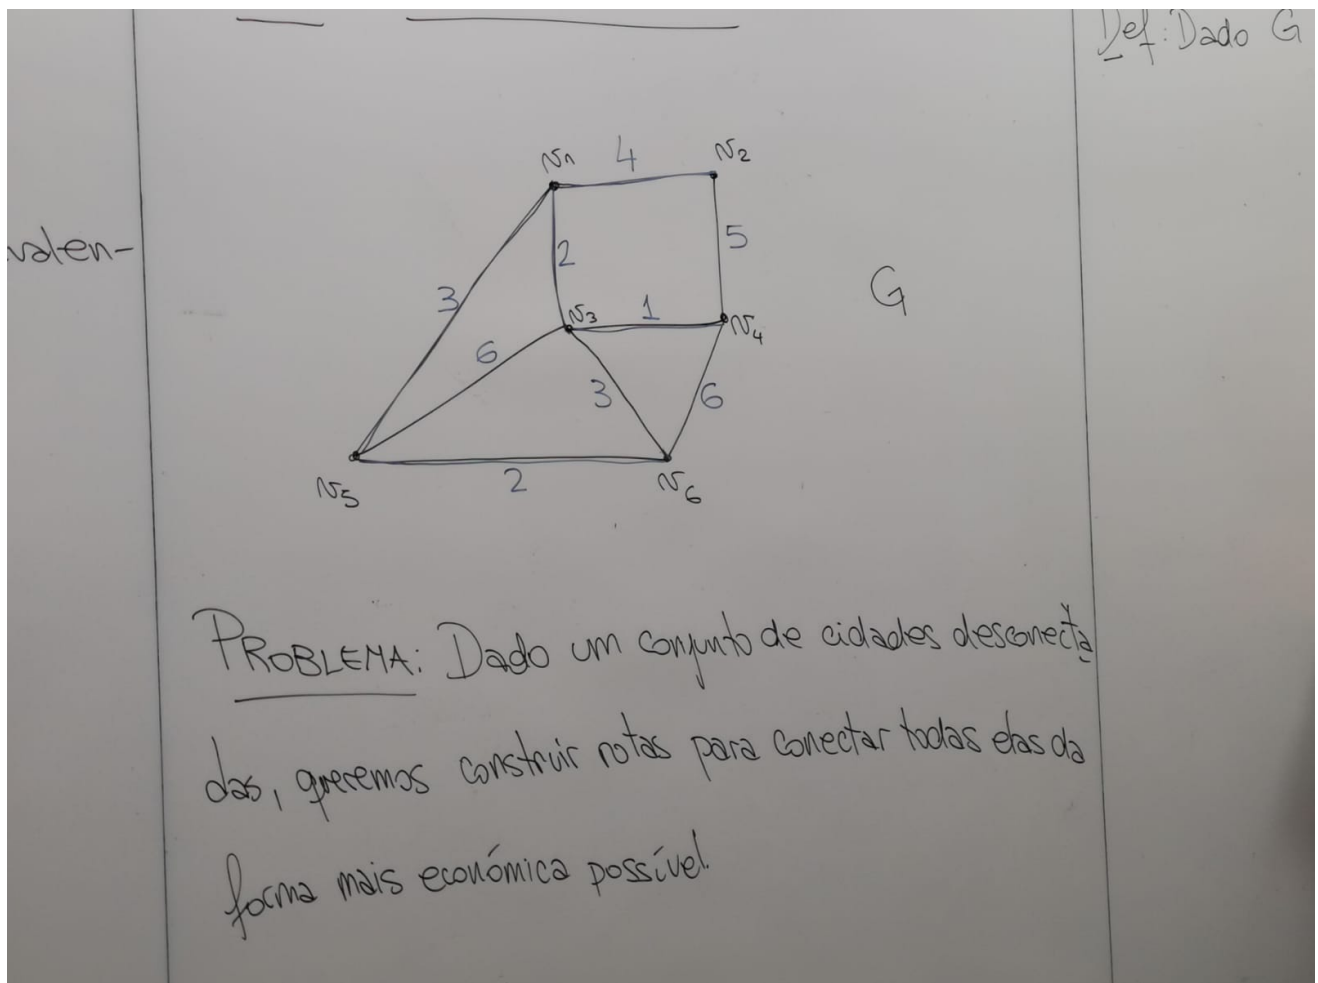 Def: Dado G
valen-
v1 4 v2
2 5
G
3 v3 1 v4
6 3 6
v5 2 v6
PROBLEMA: Dado um conjunto de cidades desconecta
das, queremos construir rotas para conectar todas elas da
forma mais económica possível.